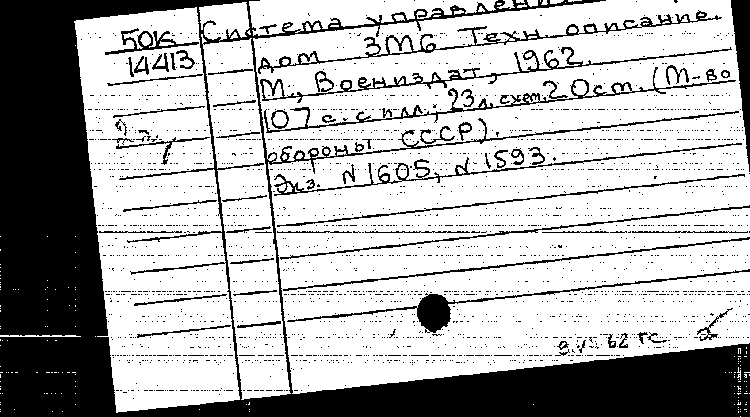 50к Система управлени
14413 дом 3М6 Техн. описание.
М., Воениздат, 1962.
107 с. с илл.; 23 л. схем. 20 см. (М-во
обороны СССР).
Экз. N 1605, N 1593.
62 гс